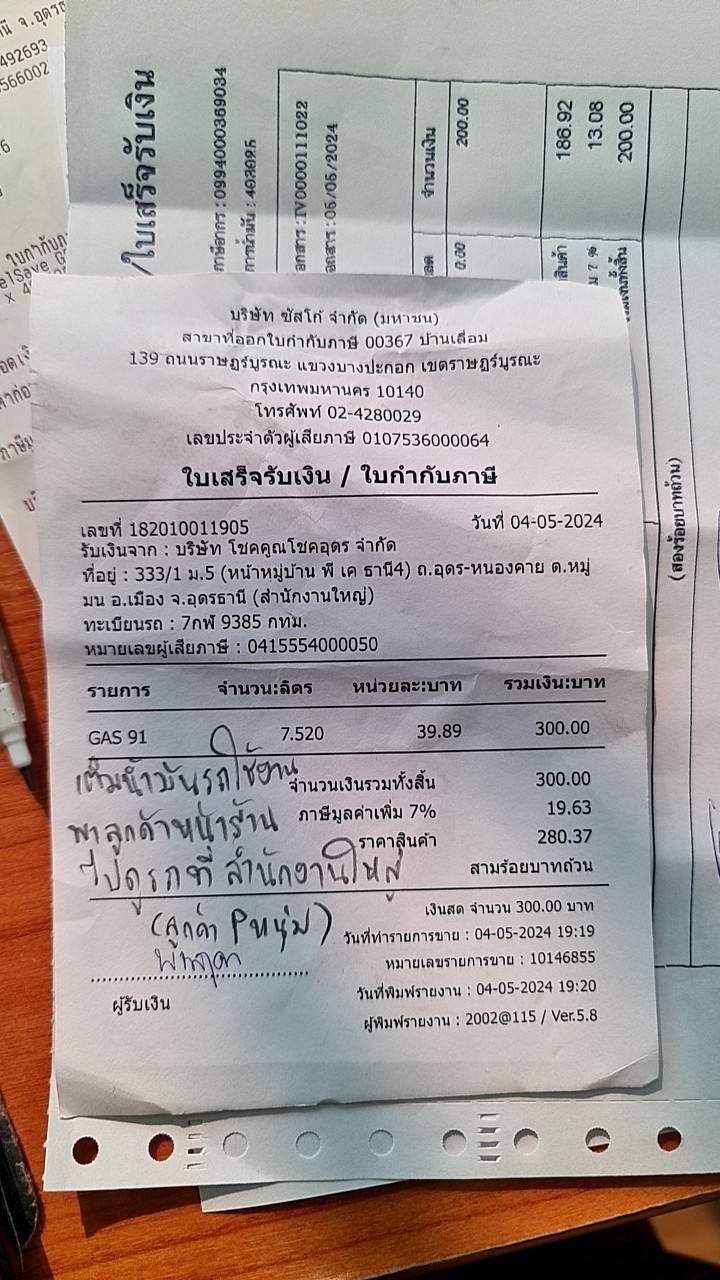 บริษัท ซัสโก้ จำกัด (มหาชน)
สาขาที่ออกใบกำกับภาษี 00367 บ้านเลื่อม
139 ถนนราษฎร์บูรณะ แขวงบางปะกอก เขตราษฎร์บูรณะ
กรุงเทพมหานคร 10140
โทรศัพท์ 02-4280029
เลขประจำตัวผู้เสียภาษี 0107536000064
ใบเสร็จรับเงิน / ใบกำกับภาษี
เลขที่ 182010011905 วันที่ 04-05-2024
รับเงินจาก : บริษัท โชคคูณโชคอุดร จำกัด
ที่อยู่ : 333/1 ม.5 (หน้าหมู่บ้าน พี เค ธานี4) ถ.อุดร-หนองคาย ต.หมู
มน อ.เมือง จ.อุดรธานี (สำนักงานใหญ่)
ทะเบียนรถ : 7กฬ 9385 กทม.
หมายเลขผู้เสียภาษี : 0415554000050
รายการ จำนวน:ลิตร หน่วยละ:บาท รวมเงิน:บาท
GAS 91 7.520 39.89 300.00
เติมน้ำมันรถใช้งาน
จำนวนเงินรวมทั้งสิ้น 300.00
พาลูกค้าหน้าร้าน
ภาษีมูลค่าเพิ่ม 7% 19.63
ราคาสินค้า 280.37
ไปดูรถที่ สำนักงานใหญ่
สามร้อยบาทถ้วน
(ลูกค้า Pหนุ่ม)
เงินสด จำนวน 300.00 บาท
วันที่ทำรายการขาย : 04-05-2024 19:19
หมายเลขรายการขาย : 10146855
วันที่พิมพ์รายงาน : 04-05-2024 19:20
ผู้รับเงิน
ผู้พิมพ์รายงาน : 2002@115 / Ver.5.8
/ใบเสร็จรับเงิน
ภาษีอากร : 0994000369034
อกสาร : IV0000111022
อกสาร : 05/05/2024
จำนวนเงิน
0.00 200.00
สินค้า 186.92
ม 7 % 13.08
200.00
(สองร้อยบาทถ้วน)
492693
566002